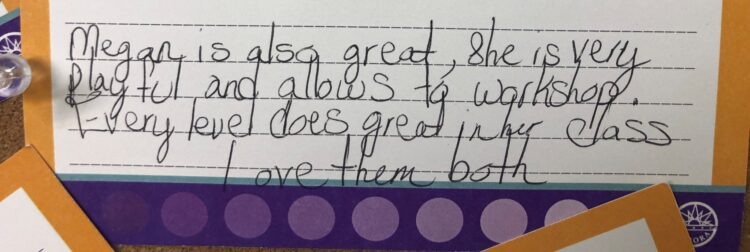 Megan is also great, She is very
Playful and allows to workshop.
Every level does great in her class
Love them both